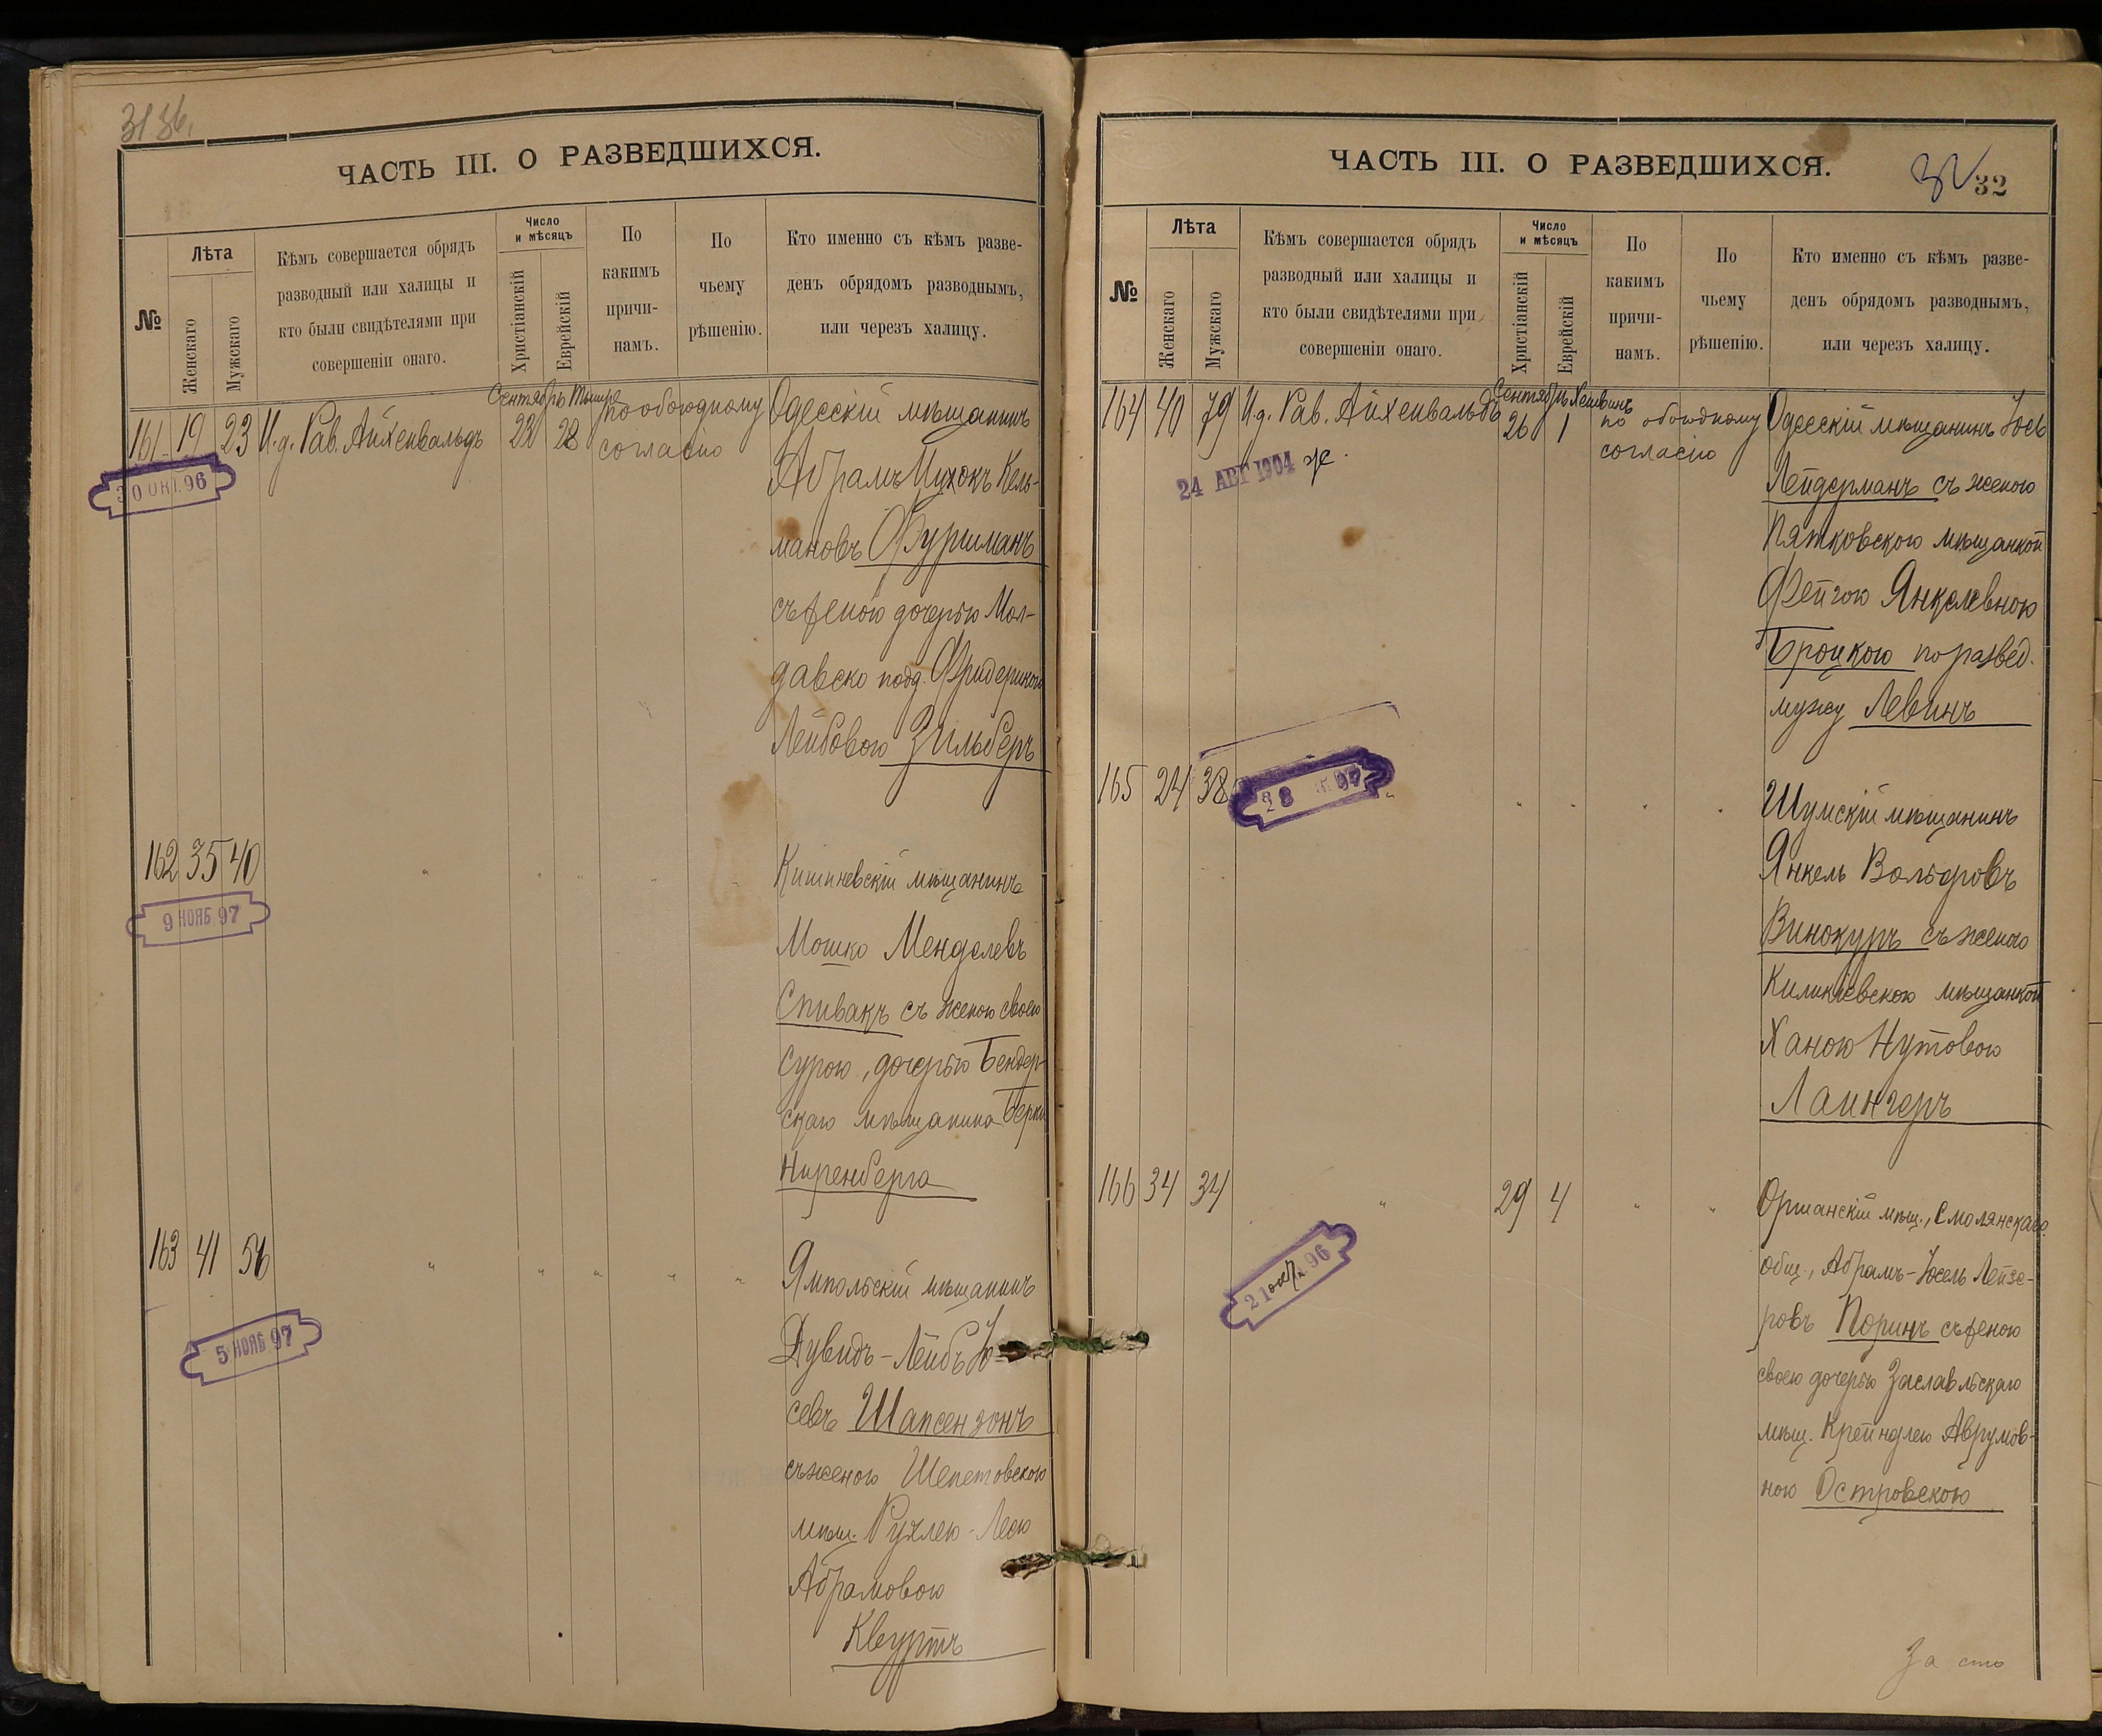 ЧАСТЬ III. О РАЗВЕДШИХСЯ.
№
Лѣта
Женскаго
Мужскаго
Кѣмъ совершается обрядъ
разводный или халицы и
кто были свидѣтелями при
совершеніи онаго.
Число
и мѣсяцъ
Христіанскій
Еврейскій
По
какимъ
причи-
намъ.
По
чьему
рѣшенію.
Кто именно съ кѣмъ разве-
денъ обрядомъ разводнымъ,
или черезъ халицу.
Сентябрь Тишре
161 19 23 И.д. Рав. Айхенвальдъ 22 28 по обоюдному
согласію
30 ОКТ. 96
Одесскій мѣщанинъ
Абрамъ Ицхокъ Кель-
мановъ Фурманъ
съ женою дочерью Мол-
давско подд. Фридерикой
Лейбовою Зильберъ
162 35 40 " " " " "
9 НОЯБ 97
Кишиневскій мѣщанинъ
Мошко Менделевъ
Спивакъ съ женою своею
Сурою, дочерью Бендер-
скаго мѣщанина Берки
Ниренберга
163 41 56 " " " " "
5 НОЯБ 97
Ямпольскій мѣщанинъ
Дувидъ-Лейбъ Іо-
севъ Шапсензонъ
съ женою Шепетовскою
мѣщ. Рухлею-Леею
Абрамовою
Квуртъ
ЧАСТЬ III. О РАЗВЕДШИХСЯ.
32
32
№
Лѣта
Женскаго
Мужскаго
Кѣмъ совершается обрядъ
разводный или халицы и
кто были свидѣтелями при
совершеніи онаго.
Число
и мѣсяцъ
Христіанскій
Еврейскій
По
какимъ
причи-
намъ.
По
чьему
рѣшенію.
Кто именно съ кѣмъ разве-
денъ обрядомъ разводнымъ,
или черезъ халицу.
Сентябрь Хешвинъ
164 40 79 И.д. Рав. Айхенвальдъ 26 1 по обоюдному
согласію
24 АВГ 1904 ж.
Одесскій мѣщанинъ Іось
Лейдерманъ съ женою
Пятковскою мѣщанкой
Фейгою Янкелевною
Броцкою по развед.
мужу Левинъ
165 24 38 " " " " "
28 97
Шумскій мѣщанинъ
Янкель Вольфовъ
Винокуръ съ женою
Киликіевскою мѣщанкой
Ханою Нутовою
Лаингеръ
166 34 34 " 29 4 " "
21 окт. 96
Оршанскій мѣщ., Смолянскаго
общ., Абрамъ-Іосель Лейзе-
ровъ Поринъ съ женою
своею дочерью Заславльскаго
мѣщ. Крейндлею Аврумов-
ною Островскою
За сто